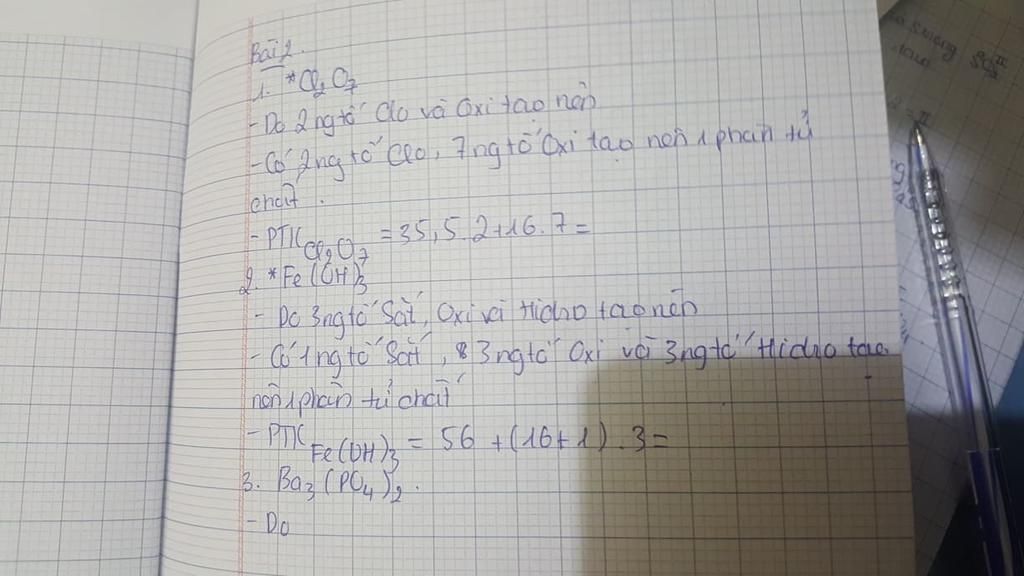 Bài 2.
1. *Cl2O7
- Do 2 ng tố Clo và Oxi tạo nên
- Có 2 ng tố Clo, 7 ng tố Oxi tạo nên 1 phân tử
chất.
- PTK Cl2O7 = 35,5.2+16.7=
2. *Fe(OH)3
- Do 3 ng tố Sắt, Oxi và Hidro tạo nên
- Có 1 ng tố Sắt, 3 ng tố Oxi và 3 ng tố Hidro tạo
nên 1 phân tử chất
- PTK Fe(OH)3 = 56 + (16+1).3=
3. Ba3(PO4)2.
- Do